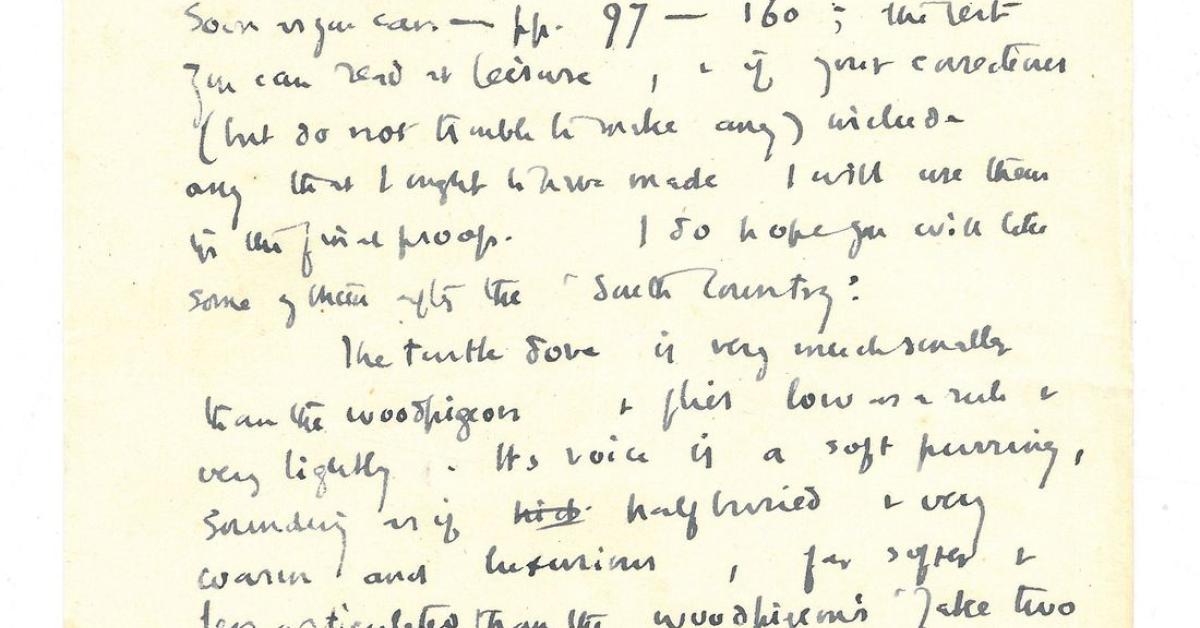 soon as you can — pp. 97 — 160 ; the rest
you can read at leisure , & if your corrections
(but do not trouble to make any) include
any that I ought to have made I will use them
in the final proofs. I do hope you will like
some of them after the 'South Country'.
The turtle dove is very much smaller
than the woodpigeon & flies low as a rule &
very lightly . Its voice is a soft purring,
sounding as if half buried & very
warm and luxurious , far softer &
less articulated than the woodpigeon's 'Take two